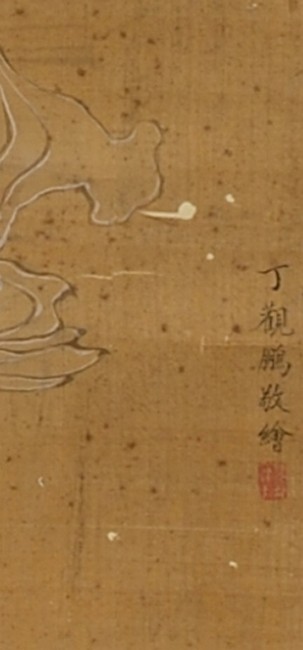 丁觀鵬敬繪